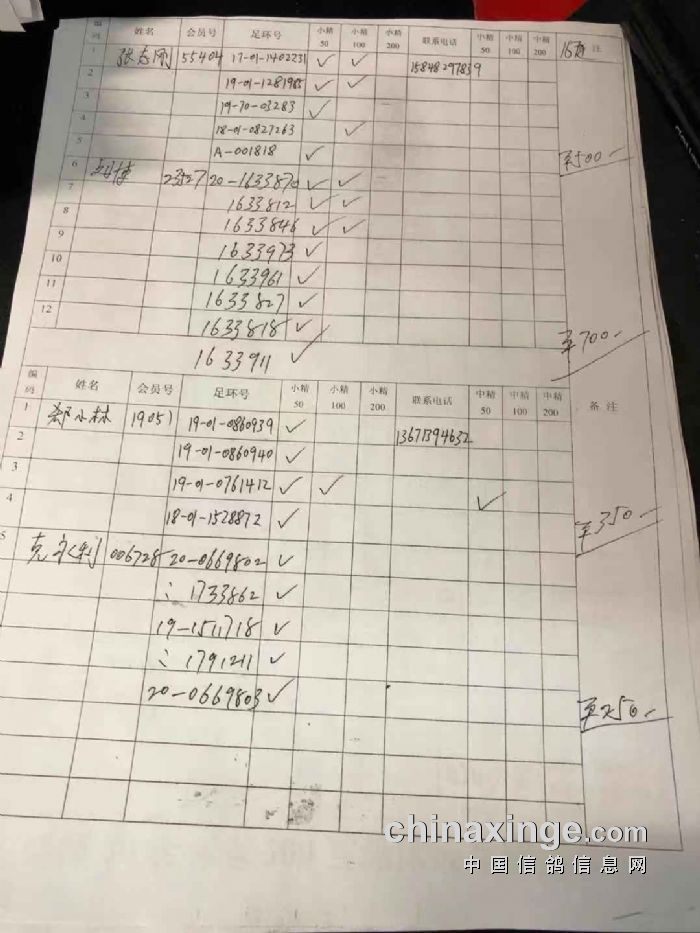 编码 姓名 会员号 足环号 小精50 小精100 小精200 联系电话 中精50 中精100 中精200 注
1 张志刚 55404 17-01-1402231 ✓ ✓ 15848297839
2 19-01-1281985 ✓ ✓
3 19-70-03283 ✓
4 18-01-0827263 ✓
5 A-001818 ✓ ¥500-
6
7 20-1633870 ✓ ✓
8 1633812 ✓ ✓
1633846 ✓ ✓
9 1633973 ✓
10 1633961 ✓
11 1633827 ✓
12 1633818 ✓ ¥700-
1633911 ✓
编码 姓名 会员号 足环号 小精50 小精100 小精200 联系电话 中精50 中精100 中精200 备注
1 郝小林 19051 19-01-0860939 ✓ 13671394632
2 19-01-0860940 ✓
3 19-01-0761412 ✓ ✓ ✓
4 18-01-1528872 ✓ ¥350-
5 006728 20-0669802 ✓
1733862 ✓
19-1511718 ✓
1791211 ✓
20-0669803 ✓ ¥250-
chinaxinge.com
中国信鸽信息网